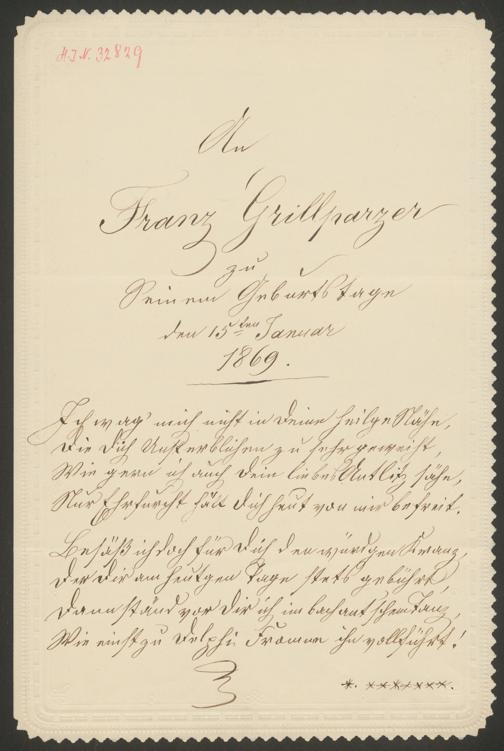 H.I.N. 32829
An
Franz Grillparzer
zu
Seinem Geburtstage
den 15ten Januar
1869.
Ich wag' mich nicht in Deine heilge Nähe,
Die Dich Unsterblichen zu sehr geweiht,
Wie gern ich auch Dein liebes Antlitz sähe,
Nur Ehrfurcht hält Dich heut von mir befreit.
Besäß ich doch für Dich den würdgen Kranz,
Der Dir am heutgen Tage stets gebührt,
Dann stand vor Dir ich im bachantschen Tanz,
Wie einst zu Delphi Fromme ihn vollführt!
*. *******.